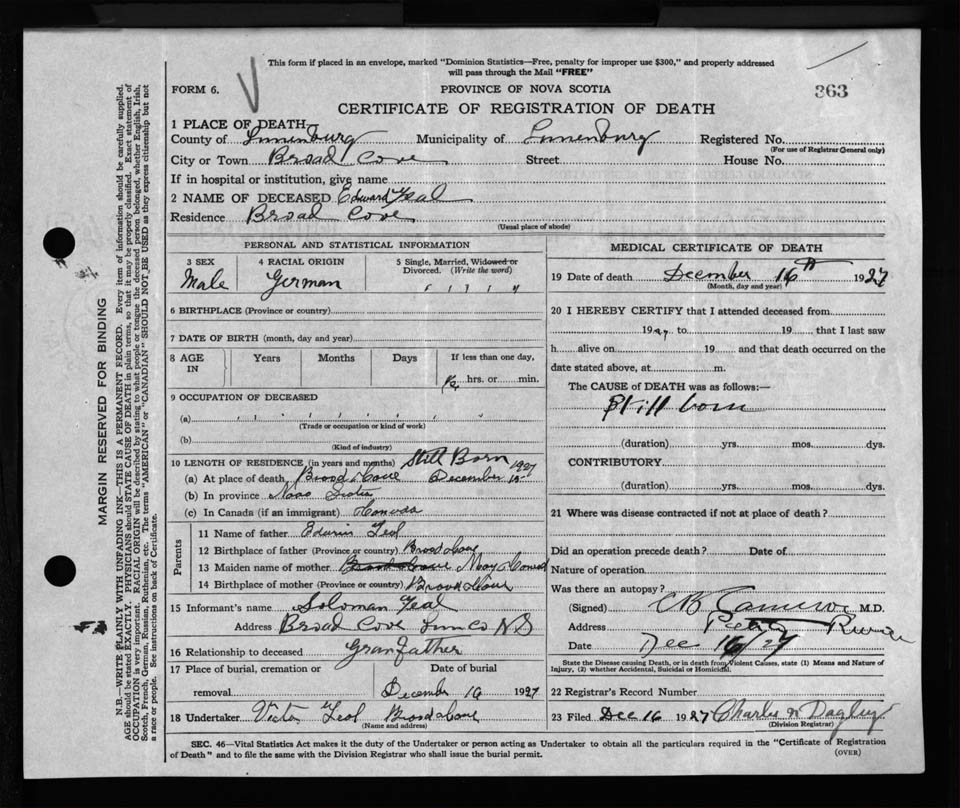 This form if placed in an envelope, marked "Dominion Statistics—Free, penalty for improper use $300," and properly addressed
will pass through the Mail "FREE"
FORM 6.
PROVINCE OF NOVA SCOTIA
363
CERTIFICATE OF REGISTRATION OF DEATH
1 PLACE OF DEATH
County of Lunenburg Municipality of Lunenburg Registered No.
(For use of Registrar General only)
City or Town Broad Cove Street House No.
If in hospital or institution, give name
2 NAME OF DECEASED Edward Teal
Residence Broad Cove
(Usual place of abode)
PERSONAL AND STATISTICAL INFORMATION
3 SEX 4 RACIAL ORIGIN 5 Single, Married, Widowed or
Divorced. (Write the word)
Male German
6 BIRTHPLACE (Province or country)
7 DATE OF BIRTH (month, day and year)
8 AGE IN Years Months Days If less than one day,
hrs. or min.
9 OCCUPATION OF DECEASED
(a)
(Trade or occupation or kind of work)
(b)
(Kind of industry)
10 LENGTH OF RESIDENCE (in years and months) Still Born
(a) At place of death Broad Cove December 1927
(b) In province Nova Scotia
(c) In Canada (if an immigrant) Canada
Parents
11 Name of father Teal
12 Birthplace of father (Province or country) Broad Cove
13 Maiden name of mother May Conrad
14 Birthplace of mother (Province or country) Broad Cove
15 Informant's name Soloman Teal
Address Broad Cove Lun Co NS
16 Relationship to deceased Granfather
17 Place of burial, cremation or removal Date of burial
December 16 1927
18 Undertaker Victor Teal Broad Cove
(Name and address)
MEDICAL CERTIFICATE OF DEATH
19 Date of death December 16th 1927
(Month, day and year)
20 I HEREBY CERTIFY that I attended deceased from
1927 to 19 that I last saw
h alive on 19 and that death occurred on the
date stated above, at m.
The CAUSE of DEATH was as follows:—
Still born
(duration) yrs. mos. dys.
CONTRIBUTORY
(duration) yrs. mos. dys.
21 Where was disease contracted if not at place of death?
Did an operation precede death? Date of
Nature of operation
Was there an autopsy?
(Signed) CB Cameron M.D.
Address Petite Riviere
Date Dec 16/27
State the Disease causing Death, or in death from Violent Causes, state (1) Means and Nature of
Injury, (2) whether Accidental, Suicidal or Homicidal.
22 Registrar's Record Number
23 Filed Dec 16 1927 Charles N Dagley
(Division Registrar)
SEC. 46—Vital Statistics Act makes it the duty of the Undertaker or person acting as Undertaker to obtain all the particulars required in the "Certificate of Registration
of Death" and to file the same with the Division Registrar who shall issue the burial permit.
(OVER)
MARGIN RESERVED FOR BINDING
N.B.—WRITE PLAINLY WITH UNFADING INK—THIS IS A PERMANENT RECORD. Every item of information should be carefully supplied.
AGE should be stated EXACTLY. PHYSICIANS should STATE CAUSE OF DEATH in plain terms, so that it may be properly classified. Exact statement of
OCCUPATION is very important. RACIAL ORIGIN will be described by stating to what people or tongue the deceased person belonged, whether English, Irish,
Scotch, French, German, Russian, Ruthenian, etc. The terms "AMERICAN" or "CANADIAN" SHOULD NOT BE USED as they express citizenship but not
a race or people. See instructions on back of Certificate.